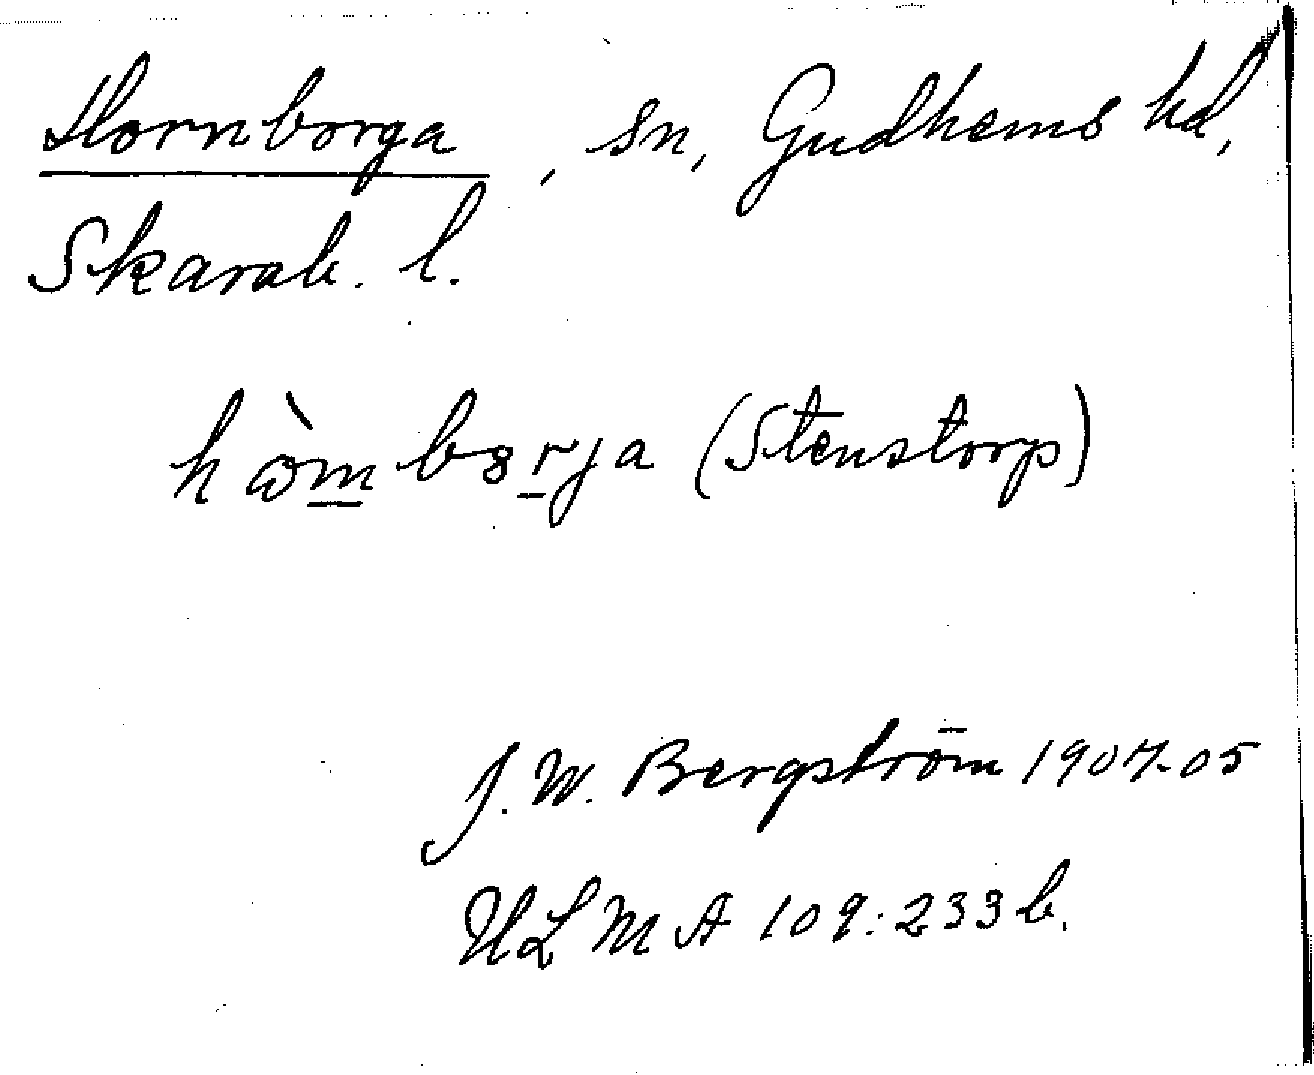 Hornborga, sn, Gudhems hd,
Skarab. l.
hòmbɞrja (Stenstorp)
J. W. Bergström 1904-05
ULMA 109:233 b.